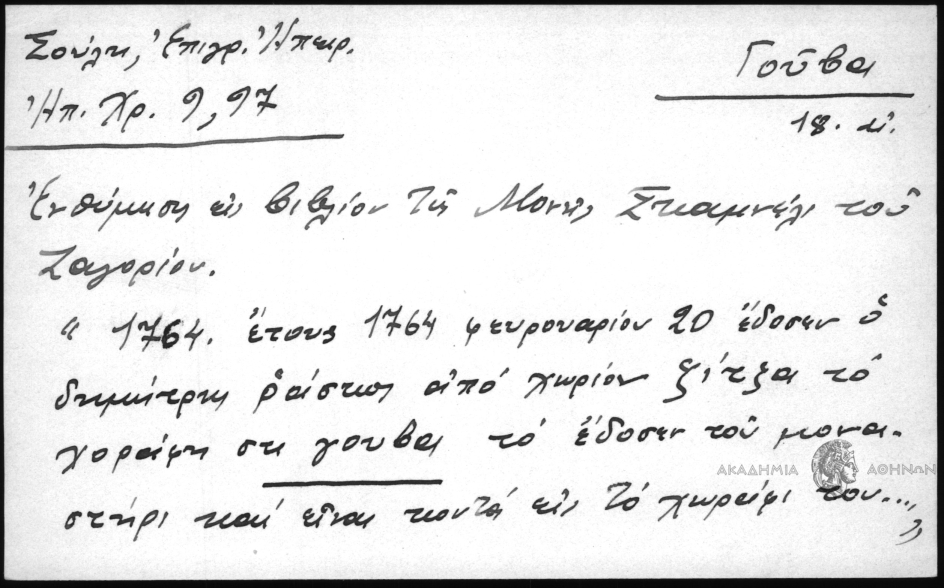 Σούλη, Ἐπιγρ. Ἠπειρ.
Ἠπ. Χρ. 9, 97
Γοῦβα
18. αἰ.
Ἐνθύμησις εἰς βιβλίον τῆς Μονῆς Σκαμνέλι τοῦ
Ζαγορίου.
" 1764. ἔτους 1764 φευρουαρίου 20 ἔδοσεν ὁ
δημήτρης ῥάπτης ἀπό χωρίον ζίτζα τό
χοράφη στι γουβα τό ἔδοσεν τοῦ μονα-
στήρι καί εἶναι κοντά εἰς τό χωράφι του...,,
ΑΚΑΔΗΜΙΑ ΑΘΗΝΩΝ